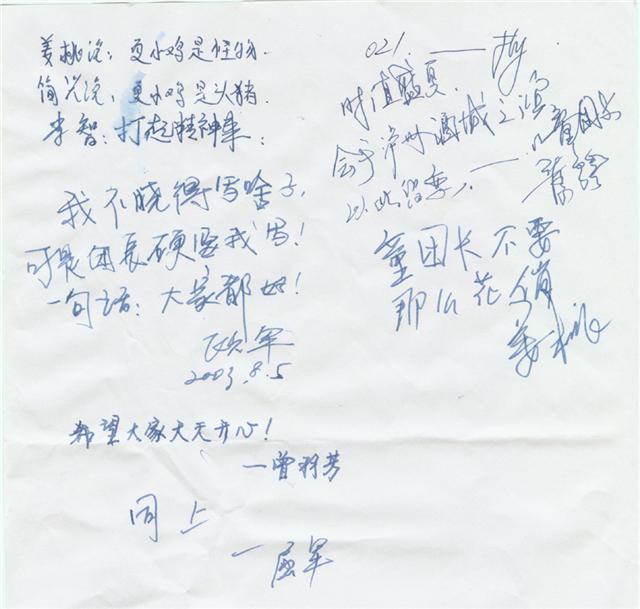 姜桃说：更小鸡是怪物.
简兴说：更小鸡是头猪.
李智：打起精神来：
我不晓得写啥子,
可是团长硬要我写！
一句话：大家都好！
欧军
2003.8.5
希望大家天天开心！
—曾羽芳
同上
—屈军
021.——
时值盛夏.
会于泸州酒城之滨
以此留念.——童团长
童团长不要
那么花俏
姜桃